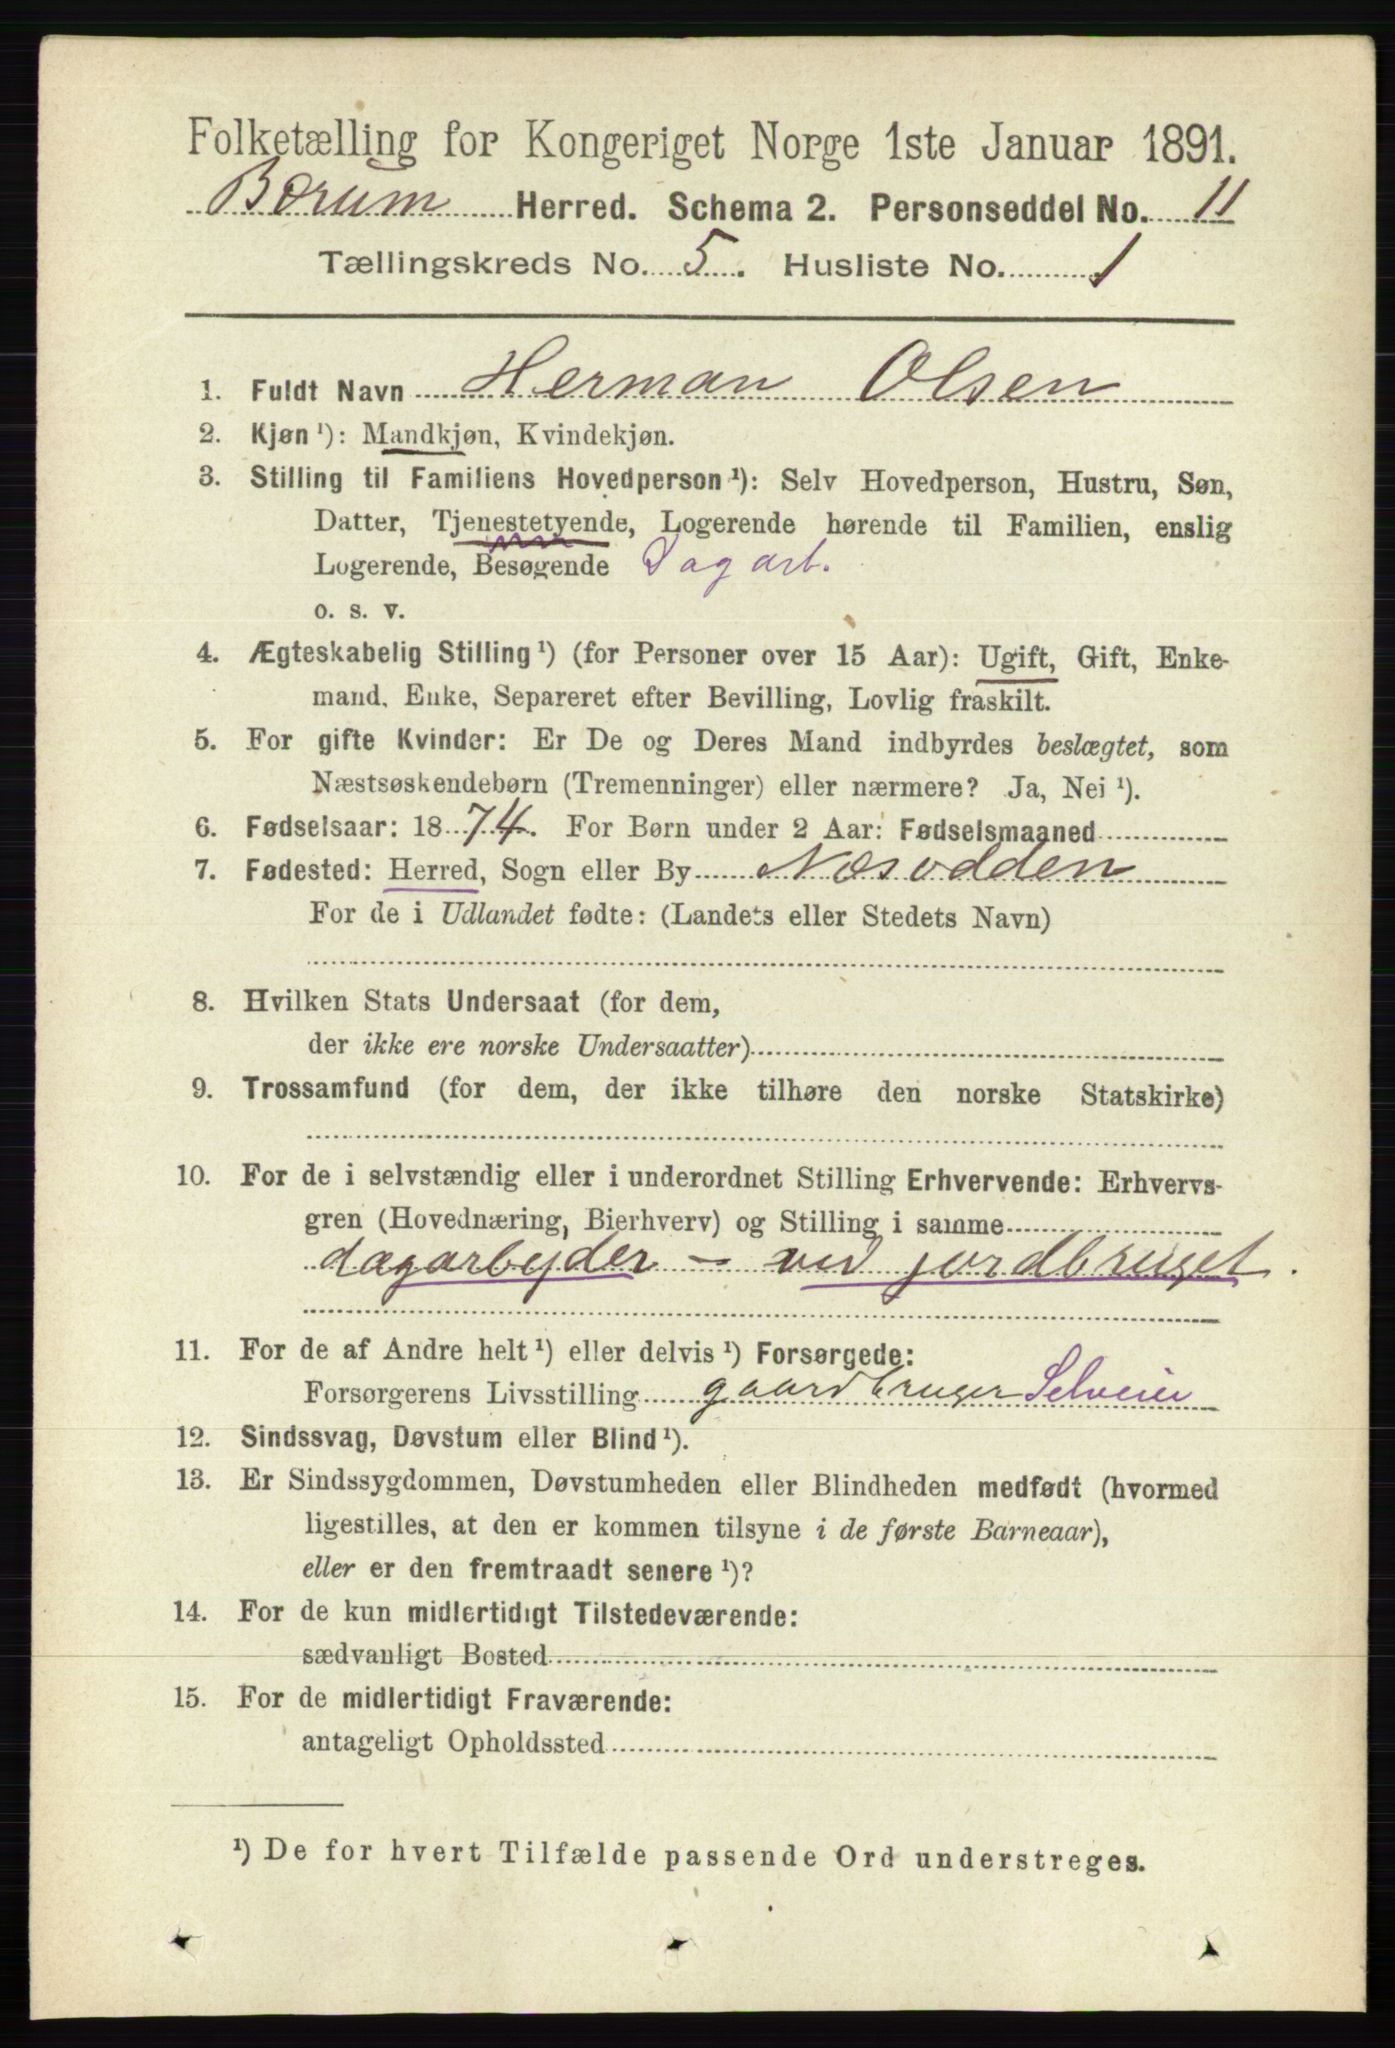 Folketælling for Kongeriget Norge 1ste Januar 1891.
Bærum Herred. Schema 2. Personseddel No. 11
Tællingskreds No. 5. Husliste No. 1
1. Fuldt Navn Herman Olsen
2. Kjøn ¹): Mandkjøn, Kvindekjøn.
3. Stilling til Familiens Hovedperson ¹): Selv Hovedperson, Hustru, Søn,
Datter, Tjenestetyende, Logerende hørende til Familien, enslig
Logerende, Besøgende Dagarb.
o. s. v.
4. Ægteskabelig Stilling ¹) (for Personer over 15 Aar): Ugift, Gift, Enke-
mand, Enke, Separeret efter Bevilling, Lovlig fraskilt.
5. For gifte Kvinder: Er De og Deres Mand indbyrdes beslægtet, som
Næstsøskendebørn (Tremenninger) eller nærmere? Ja, Nei ¹).
6. Fødselsaar: 1874. For Børn under 2 Aar: Fødselsmaaned
7. Fødested: Herred, Sogn eller By Næsodden
For de i Udlandet fødte: (Landets eller Stedets Navn)
8. Hvilken Stats Undersaat (for dem,
der ikke ere norske Undersaatter)
9. Trossamfund (for dem, der ikke tilhøre den norske Statskirke)
10. For de i selvstændig eller i underordnet Stilling Erhvervende: Erhvervs-
gren (Hovednæring, Bierhverv) og Stilling i samme
dagarbeyder – ved jordbruget.
11. For de af Andre helt ¹) eller delvis ¹) Forsørgede:
Forsørgerens Livsstilling gaardbruger Selveier
12. Sindssvag, Døvstum eller Blind ¹).
13. Er Sindssygdommen, Døvstumheden eller Blindheden medfødt (hvormed
ligestilles, at den er kommen tilsyne i de første Barneaar),
eller er den fremtraadt senere ¹)?
14. For de kun midlertidigt Tilstedeværende:
sædvanligt Bosted
15. For de midlertidigt Fraværende:
antageligt Opholdssted
¹) De for hvert Tilfælde passende Ord understreges.